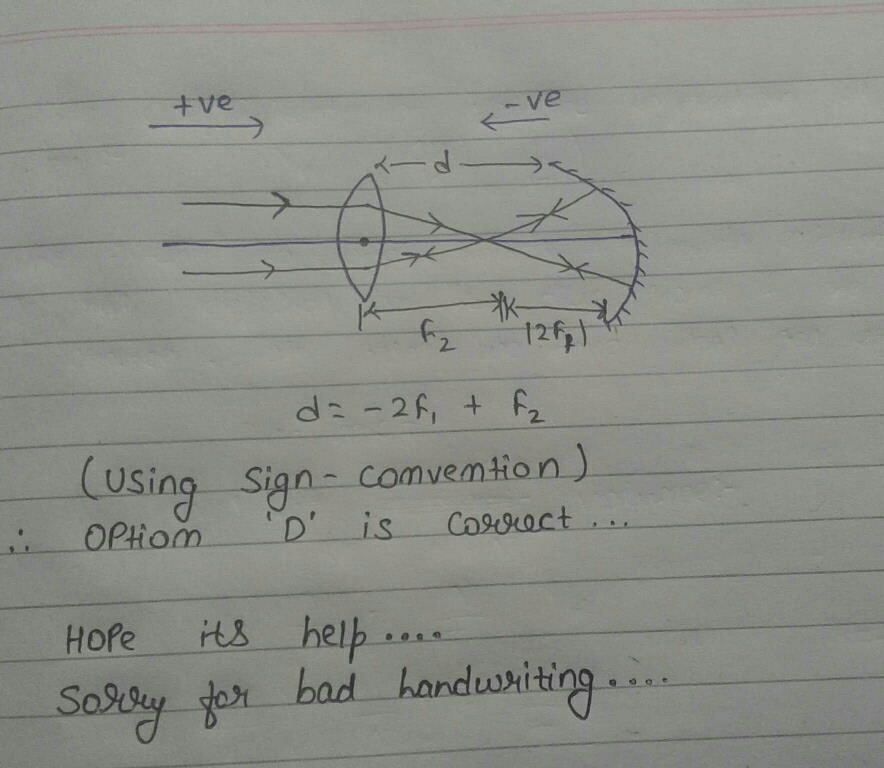 +ve -ve
d
f₂ |2f₁|
d = -2f₁ + f₂
(Using Sign-comvemtion)
∴ OPtiom 'D' is correct...
HoPe its help....
Sorry for bad handwriting....